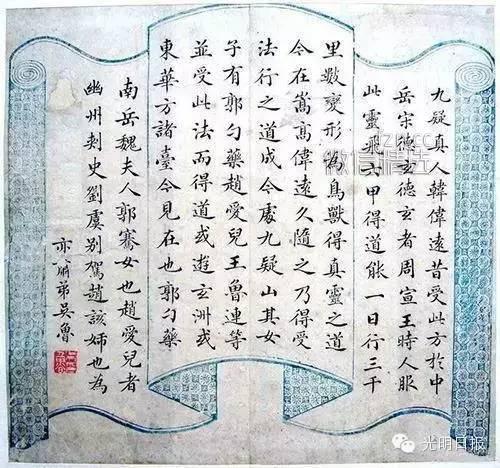 九疑真人韓偉遠昔受此方於中
岳宗德玄德玄者周宣王時人服
此靈飛六甲得道能一日行三千
里數變形為鳥獸得真靈之道
今在嵩高偉遠久隨之乃得受
法行之道成今處九疑山其女
子有郭勺藥趙愛兒王魯連等
並受此法而得道或遊玄洲或
東華方諸臺今見在也郭勺藥
南岳魏夫人郭騫女也趙愛兒者
幽州刺史劉虞别駕趙該姊也為
弟吳魯
光明日报